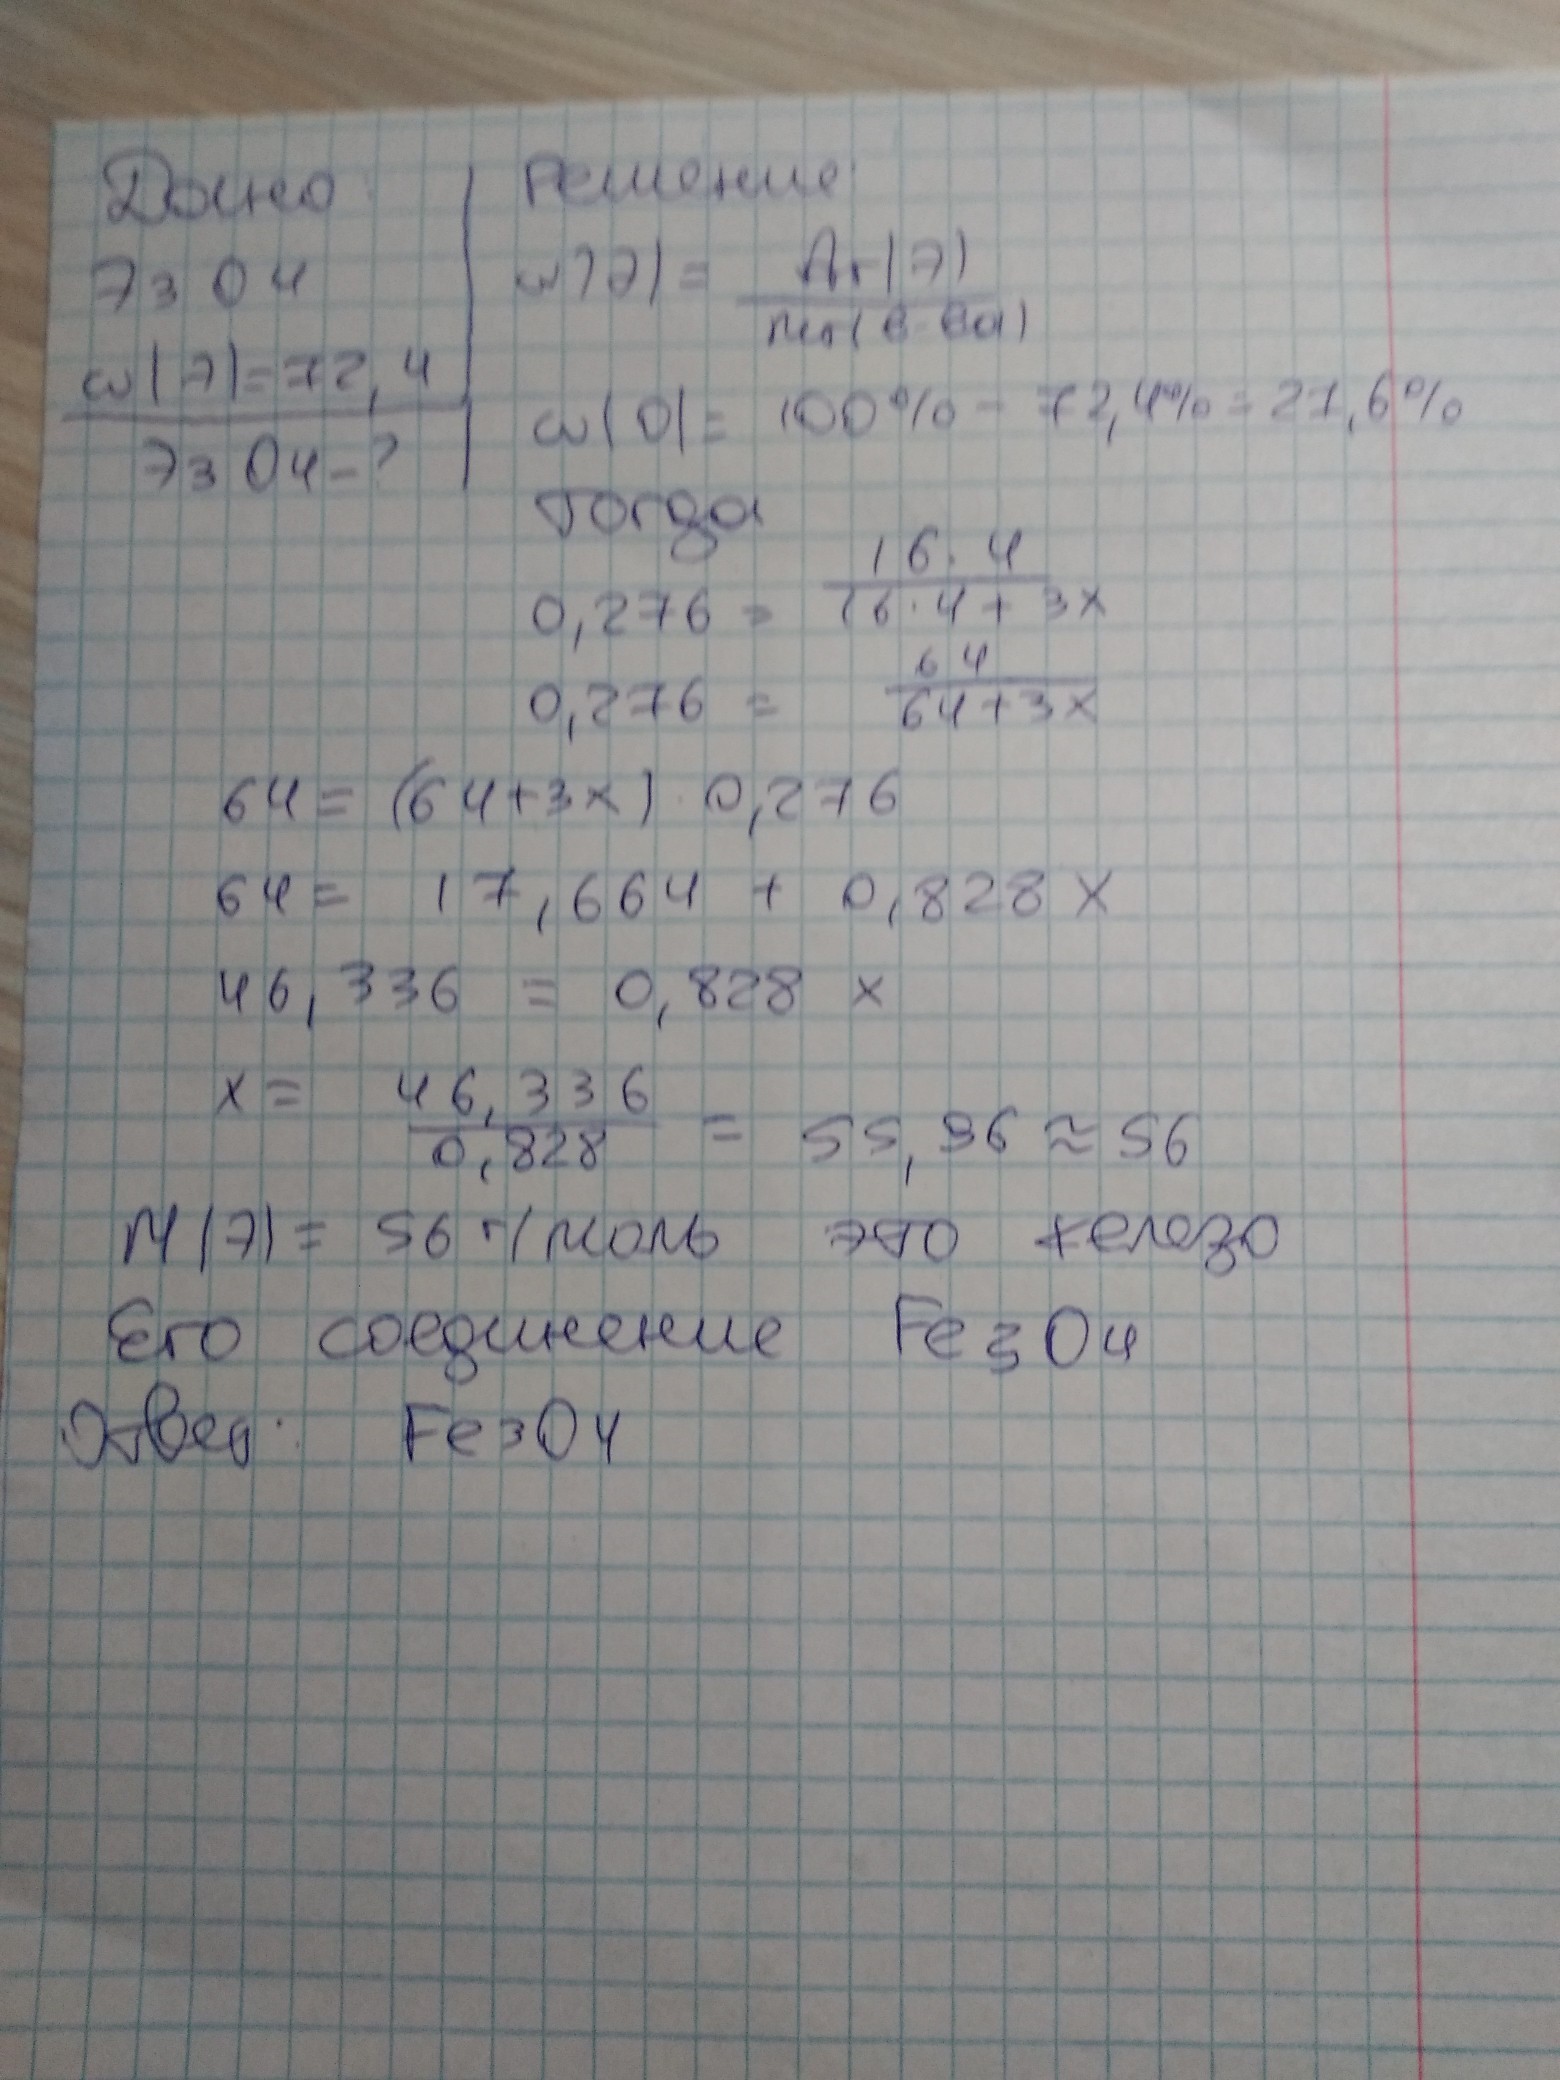 Дано:
Э3O4
w(Э)=72,4
Э3O4-?
Решение:
w(Э)= Ar(Э)
Mr(в-ва)
w(O)= 100% - 72,4% = 27,6%
Тогда
0,276 = 16·4 / 16·4+3x
0,276 = 64 / 64+3x
64= (64+3x)·0,276
64= 17,664 + 0,828 x
46,336 = 0,828 x
x= 46,336 / 0,828 = 55,96 ≈ 56
M(Э)= 56 г/моль это железо
Его соединение Fe3O4
Ответ: Fe3O4